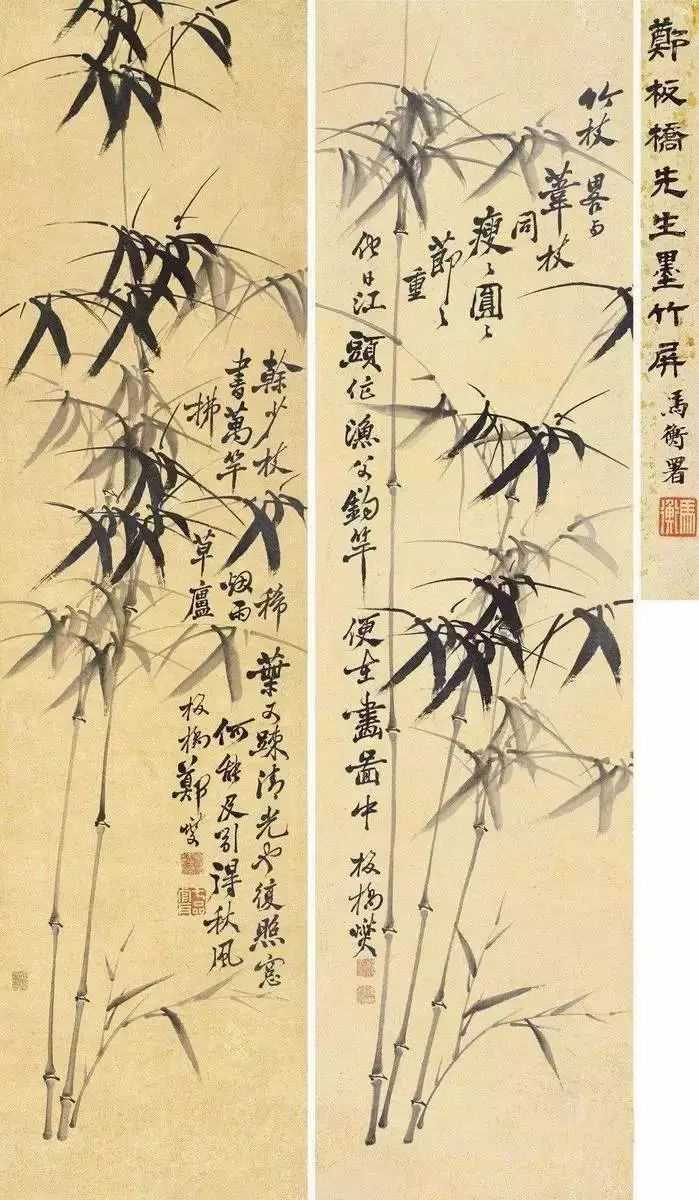 鄭板橋先生墨竹屏
馬衡署
馬衡
竹杖
畧与
葦杖
同
瘦〻圓〻
節〻
重
他日江頭作漁父釣竿便在畫圖中
板橋燮
榦少枝
稀
葉又疎清光也復照窓
書萬竿
烟雨
何能及引得秋風
拂
草廬
板橋鄭燮